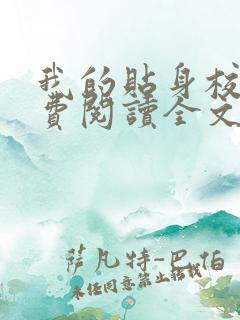 我的貼身校
費閱讀全文
薩凡特-巴伯
未经同意禁止转载